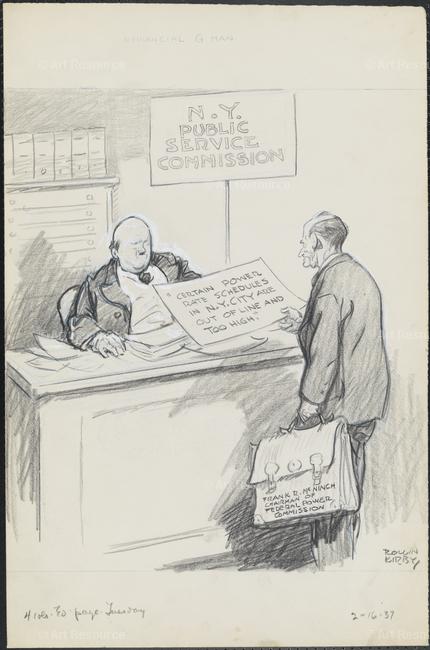 FINANCIAL G MAN
N.Y.
PUBLIC
SERVICE
COMMISSION
"CERTAIN POWER
RATE SCHEDULES
IN N.Y. CITY ARE
OUT OF LINE AND
TOO HIGH."
FRANK R. McNINCH
CHAIRMAN OF
FEDERAL POWER
COMMISSION
ROLLIN
KIRBY
4 cols. Ed page. Tuesday
2-16-37
Art Resource